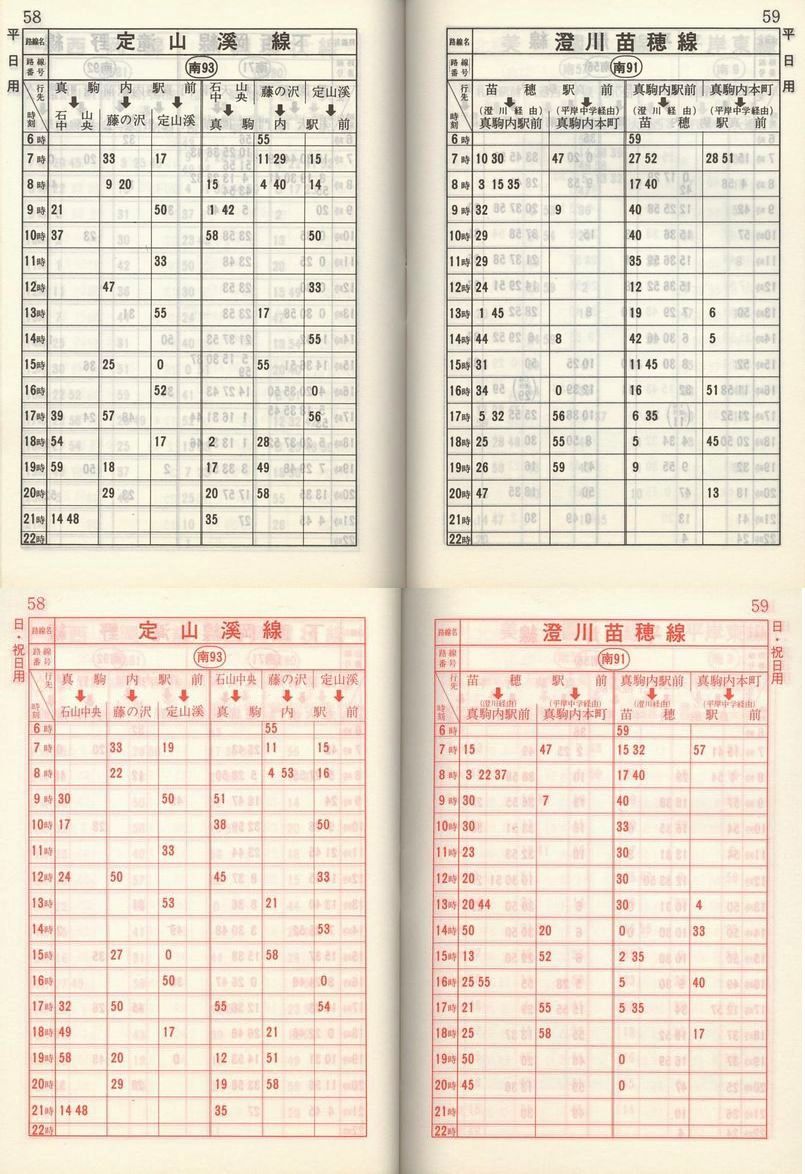 58
平日用
路線名 定山溪線
路線番号 南93
行先 時刻 真駒内駅前 石山中央 藤の沢 定山溪
石山中央 藤の沢 定山溪 真駒内駅前
6時 55
7時 33 17 11 29 15
8時 9 20 15 4 40 14
9時 21 50 1 42
10時 37 58 50
11時 33
12時 47 33
13時 55 17
14時 55
15時 25 0 55
16時 52 0
17時 39 57 56
18時 54 17 2 28
19時 59 18 17 49
20時 29 20 58
21時 14 48 35
22時
59
平日用
路線名 澄川苗穂線
路線番号 南91
行先 時刻 苗穂駅前 真駒内駅前 真駒内本町
(澄川経由) (平岸中学経由) (澄川経由) (平岸中学経由)
真駒内駅前 真駒内本町 苗穂駅前
6時 59
7時 10 30 47 27 52 28 51
8時 3 15 35 17 40
9時 32 9 40
10時 29 40
11時 29 35
12時 24 12
13時 1 45 19 6
14時 44 8 42 5
15時 31 11 45
16時 34 0 16 51
17時 5 32 56 6 35
18時 25 55 5 45
19時 26 59 9
20時 47 13
21時
22時
58
日・祝日用
路線名 定山溪線
路線番号 南93
行先 時刻 真駒内駅前 石山中央 藤の沢 定山溪
石山中央 藤の沢 定山溪 真駒内駅前
6時 55
7時 33 19 11 15
8時 22 4 53 16
9時 30 50 51
10時 17 38 50
11時 33
12時 24 50 45 33
13時 53 21
14時 53
15時 27 0 58
16時 50 0
17時 32 50 55 54
18時 49 17 21
19時 58 20 12 51
20時 29 19 58
21時 14 48 35
22時
59
日・祝日用
路線名 澄川苗穂線
路線番号 南91
行先 時刻 苗穂駅前 真駒内駅前 真駒内本町
(澄川経由) (平岸中学経由) (澄川経由) (平岸中学経由)
真駒内駅前 真駒内本町 苗穂駅前
6時 59
7時 15 47 15 32 57
8時 3 22 37 17 40
9時 30 7 40
10時 30 33
11時 23 30
12時 20 30
13時 20 44 30 4
14時 50 20 0 33
15時 13 52 2 35
16時 25 55 5 40
17時 21 55 5 35
18時 25 58 17
19時 50 0
20時 45 0
21時
22時